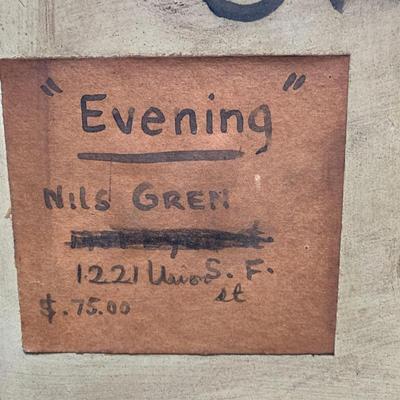 "Evening"
Nils GREN
1221 Union S. F.
st
$.75.00